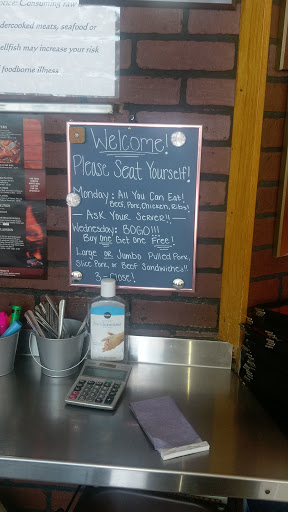 otice: Consuming raw
dercooked meats, seafood or
ellfish may increase your risk
f foodborne illness
Welcome!
Please Seat Yourself!
Monday: All You Can Eat!
Beef, Pork, Chicken, Ribs!
— Ask Your Server!! —
Wednesday: BOGO!!!
Buy One Get One Free!
Large or Jumbo Pulled Pork,
Slice Pork, or Beef Sandwiches!!
3 - Close!